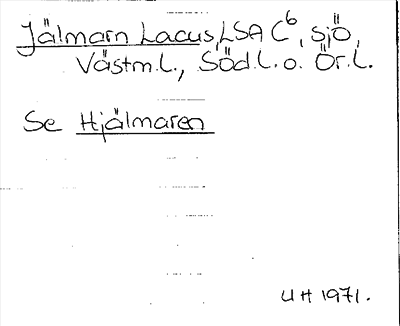 Jälmarn Lacus, LSA C6, sjö,
Västm.l., Söd.l. o. Ör.l.
Se Hjälmaren
UH 1971.